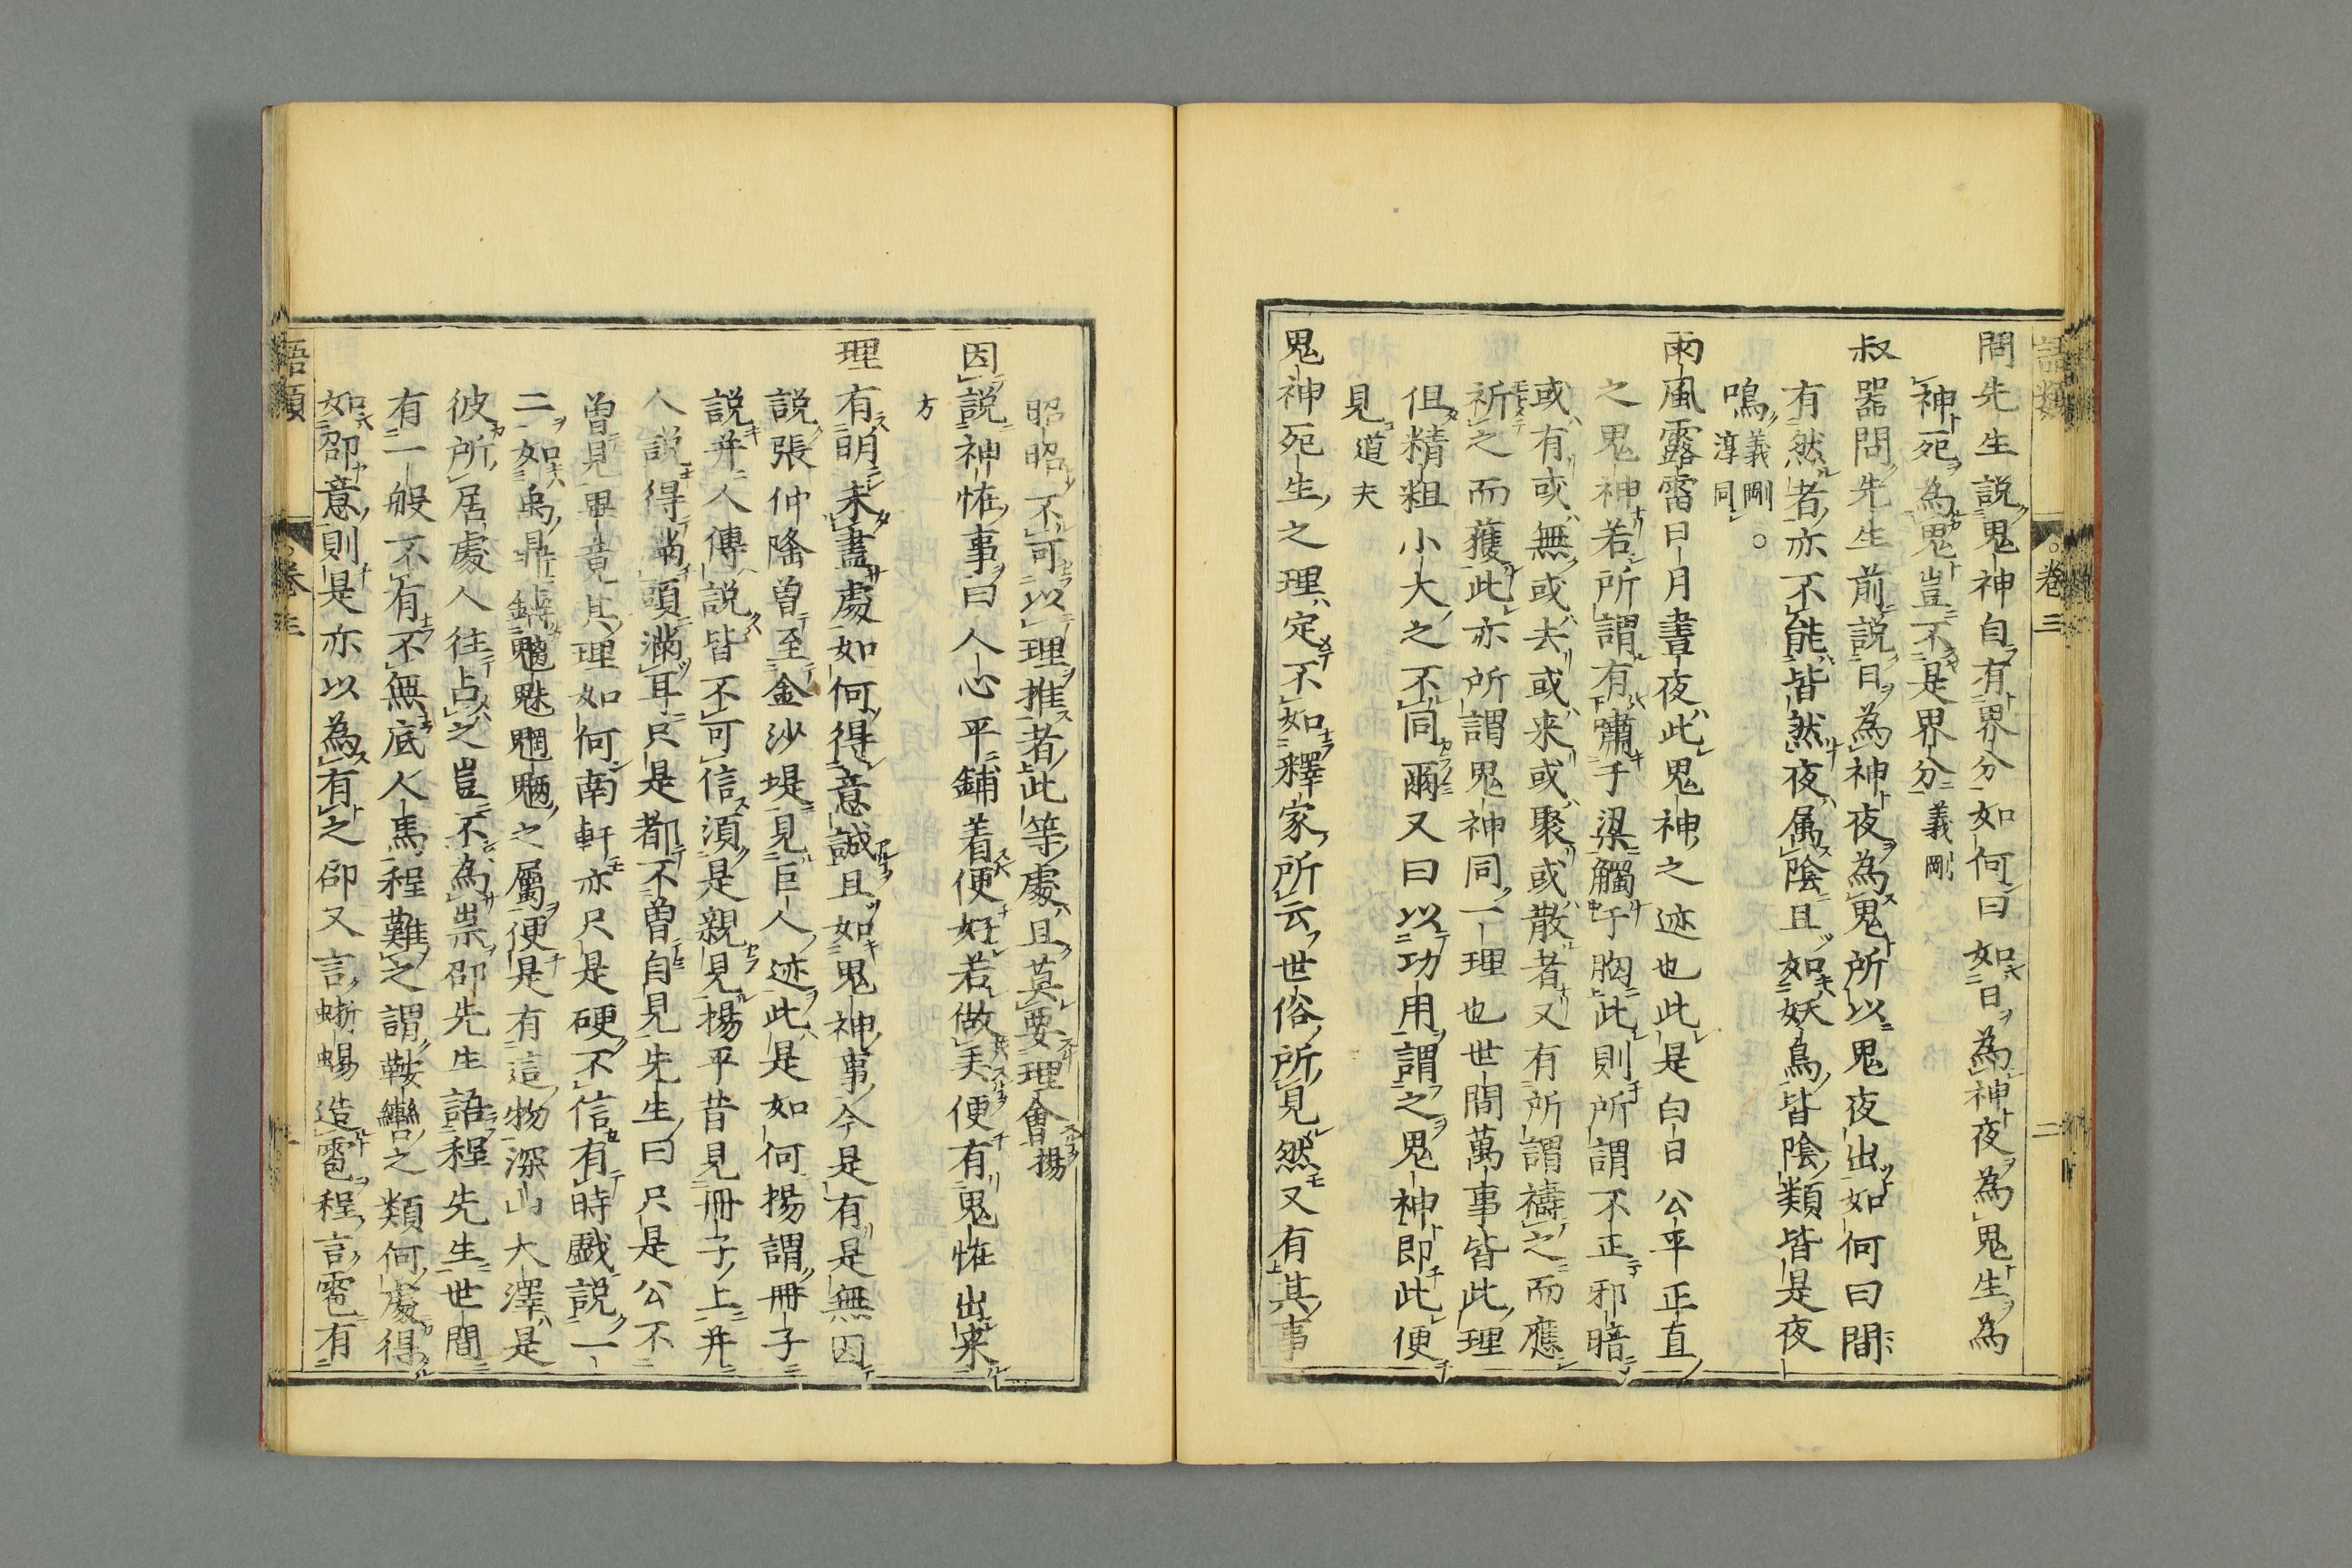 語類
卷三
二
問先生説鬼神自有界分如何曰如日為神夜為鬼生為
神死為鬼豈不是界分義剛
叔器問先生前説日為神夜為鬼所以鬼夜出如何曰間
有然者亦不能皆然夜属陰且如妖鳥皆陰類皆是夜
鳴義剛淳同○
雨風露雷日月晝夜此鬼神之迹也此是白日公平正直
之鬼神若所謂有嘯于梁觸于胸此則所謂不正邪暗
或有或無或去或来或聚或散者又有所謂禱之而應
祈之而獲此亦所謂鬼神同一理也世間萬事皆此理
但精粗小大之不同爾又曰以功用謂之鬼神即此便
見道夫
鬼神死生之理定不如釋家所云世俗所見然又有其事
昭昭不可以理推者此等處且莫要理會揚
因説神怪事曰人心平鋪着便好若做弄便有鬼怪出来
方
理有明未盡處如何得意誠且如鬼神事今是有是無因
説張仲隆曾至金沙堤見巨人迹此是如何揚謂冊子
説并人傳説皆不可信須是親見揚平昔見冊子上并
人説得滿頭滿耳只是都不曾自見先生曰只是公不
曾見畢竟其理如何南軒亦只是硬不信有時戲説一
二如禹鼎鑄魑魅魍魎之屬便是有這物深山大澤是
彼所居處人往占之豈不為祟邵先生語程先生世間
有一般不有不無底人馬程難之謂鞍轡之類何處得
如邵意則是亦以為有之邵又言蜥蜴造雹程言雹有
語類
卷三